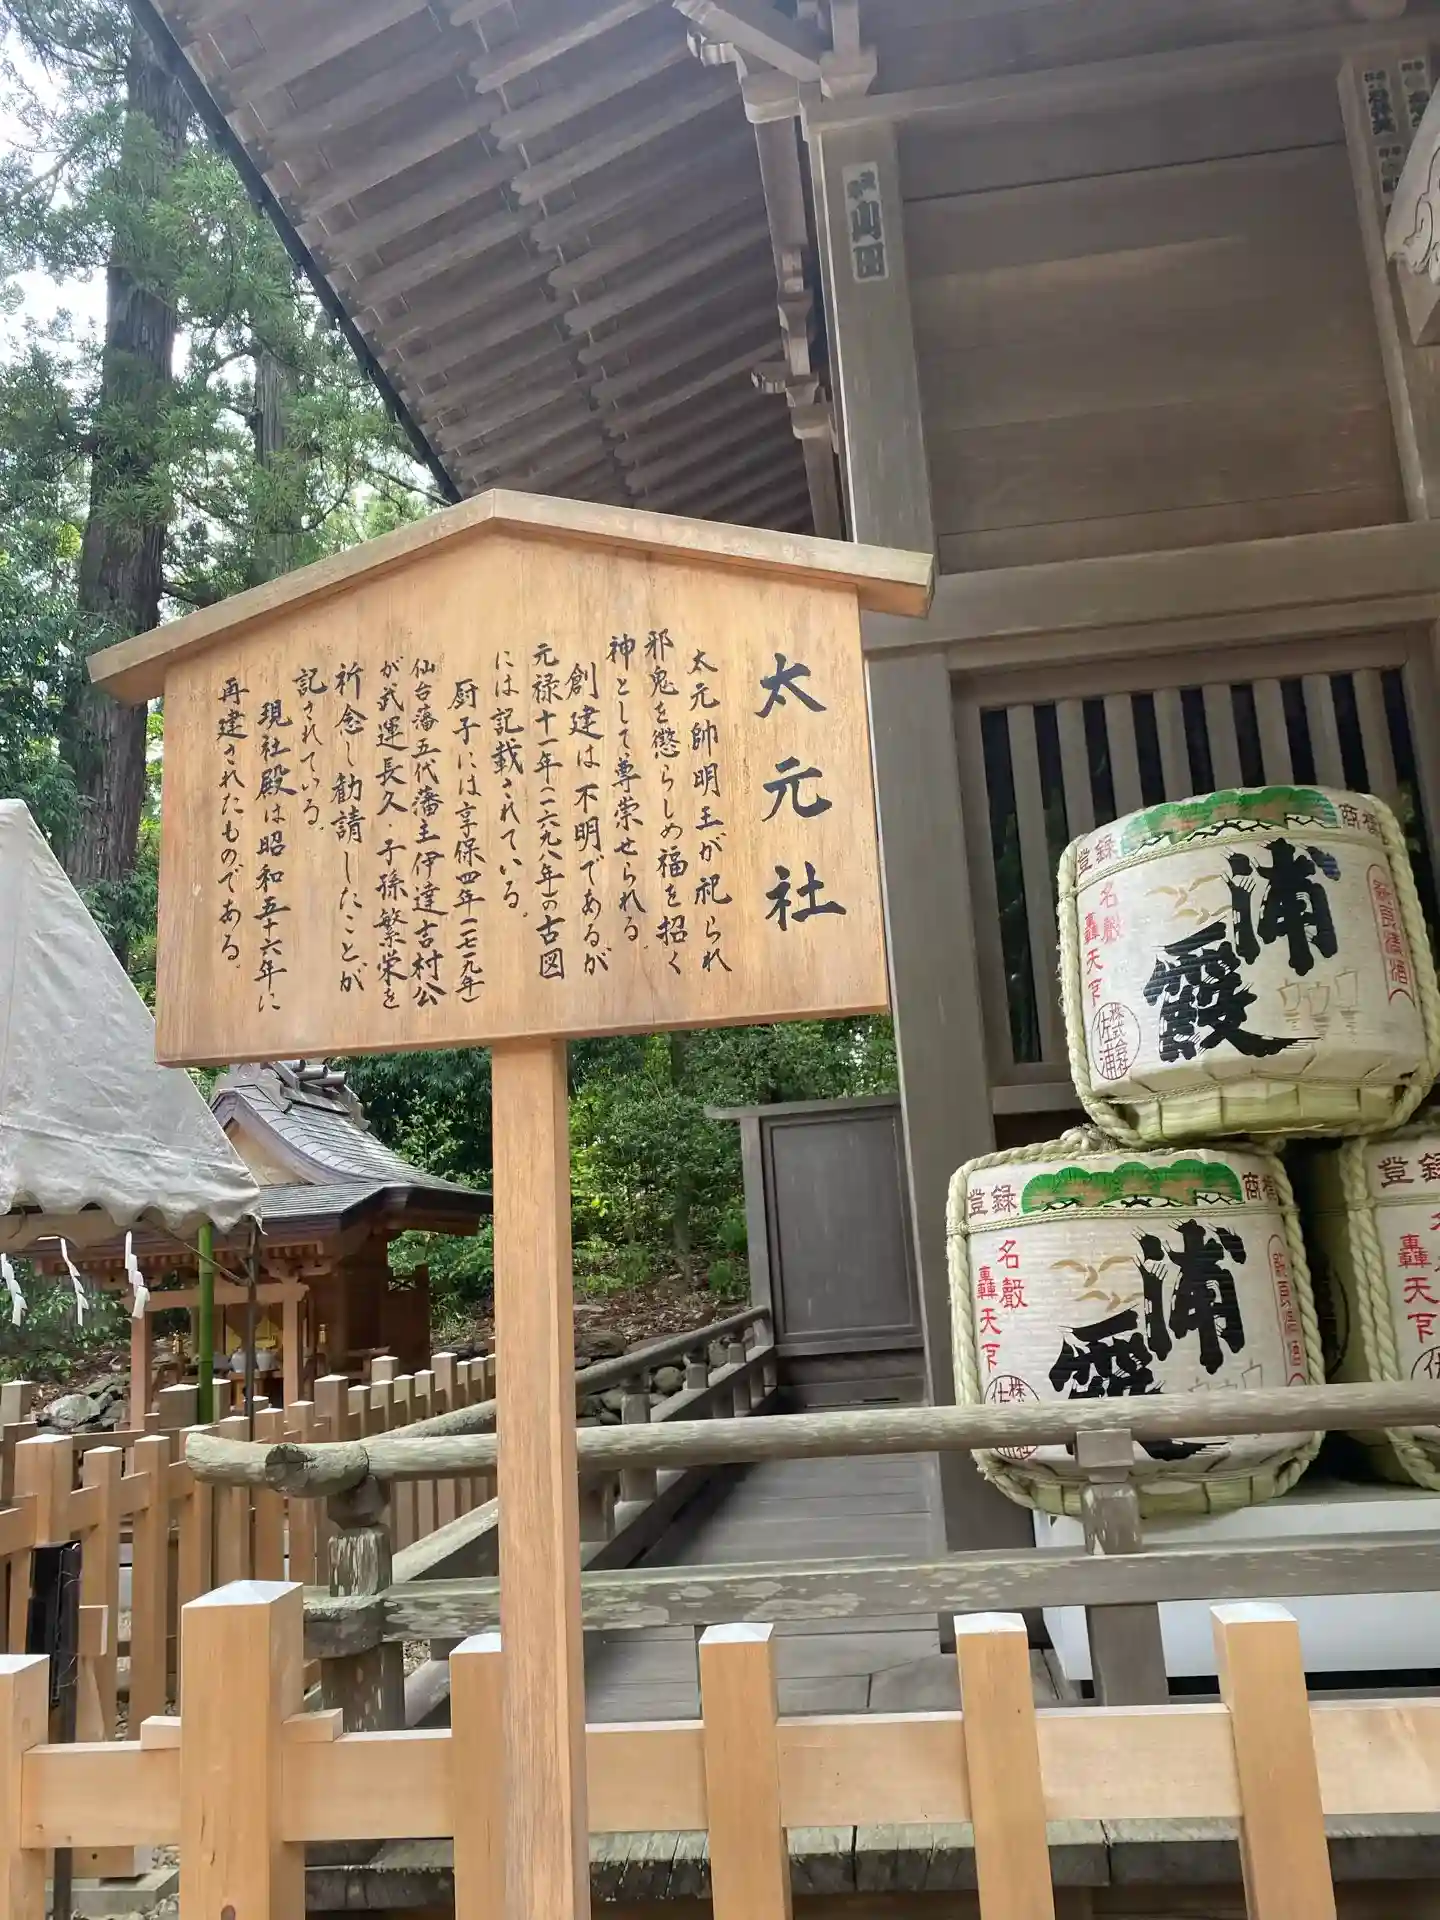 太元社
太元帥明王が祀られ
邪鬼を懲らしめ福を招く
神として尊崇せられる。
創建は不明であるが
元禄十一年(一六九八年)の古図
には記載されている。
厨子には享保四年(一七一九年)
仙台藩五代藩主伊達吉村公
が武運長久・子孫繁栄を
祈念し勧請したことが
記されている。
現社殿は昭和五十六年に
再建されたものである。
山田
登録
商標
名聲
轟天下
浦霞
株式会社
佐浦
登録
商標
名聲
轟天下
浦霞
登録